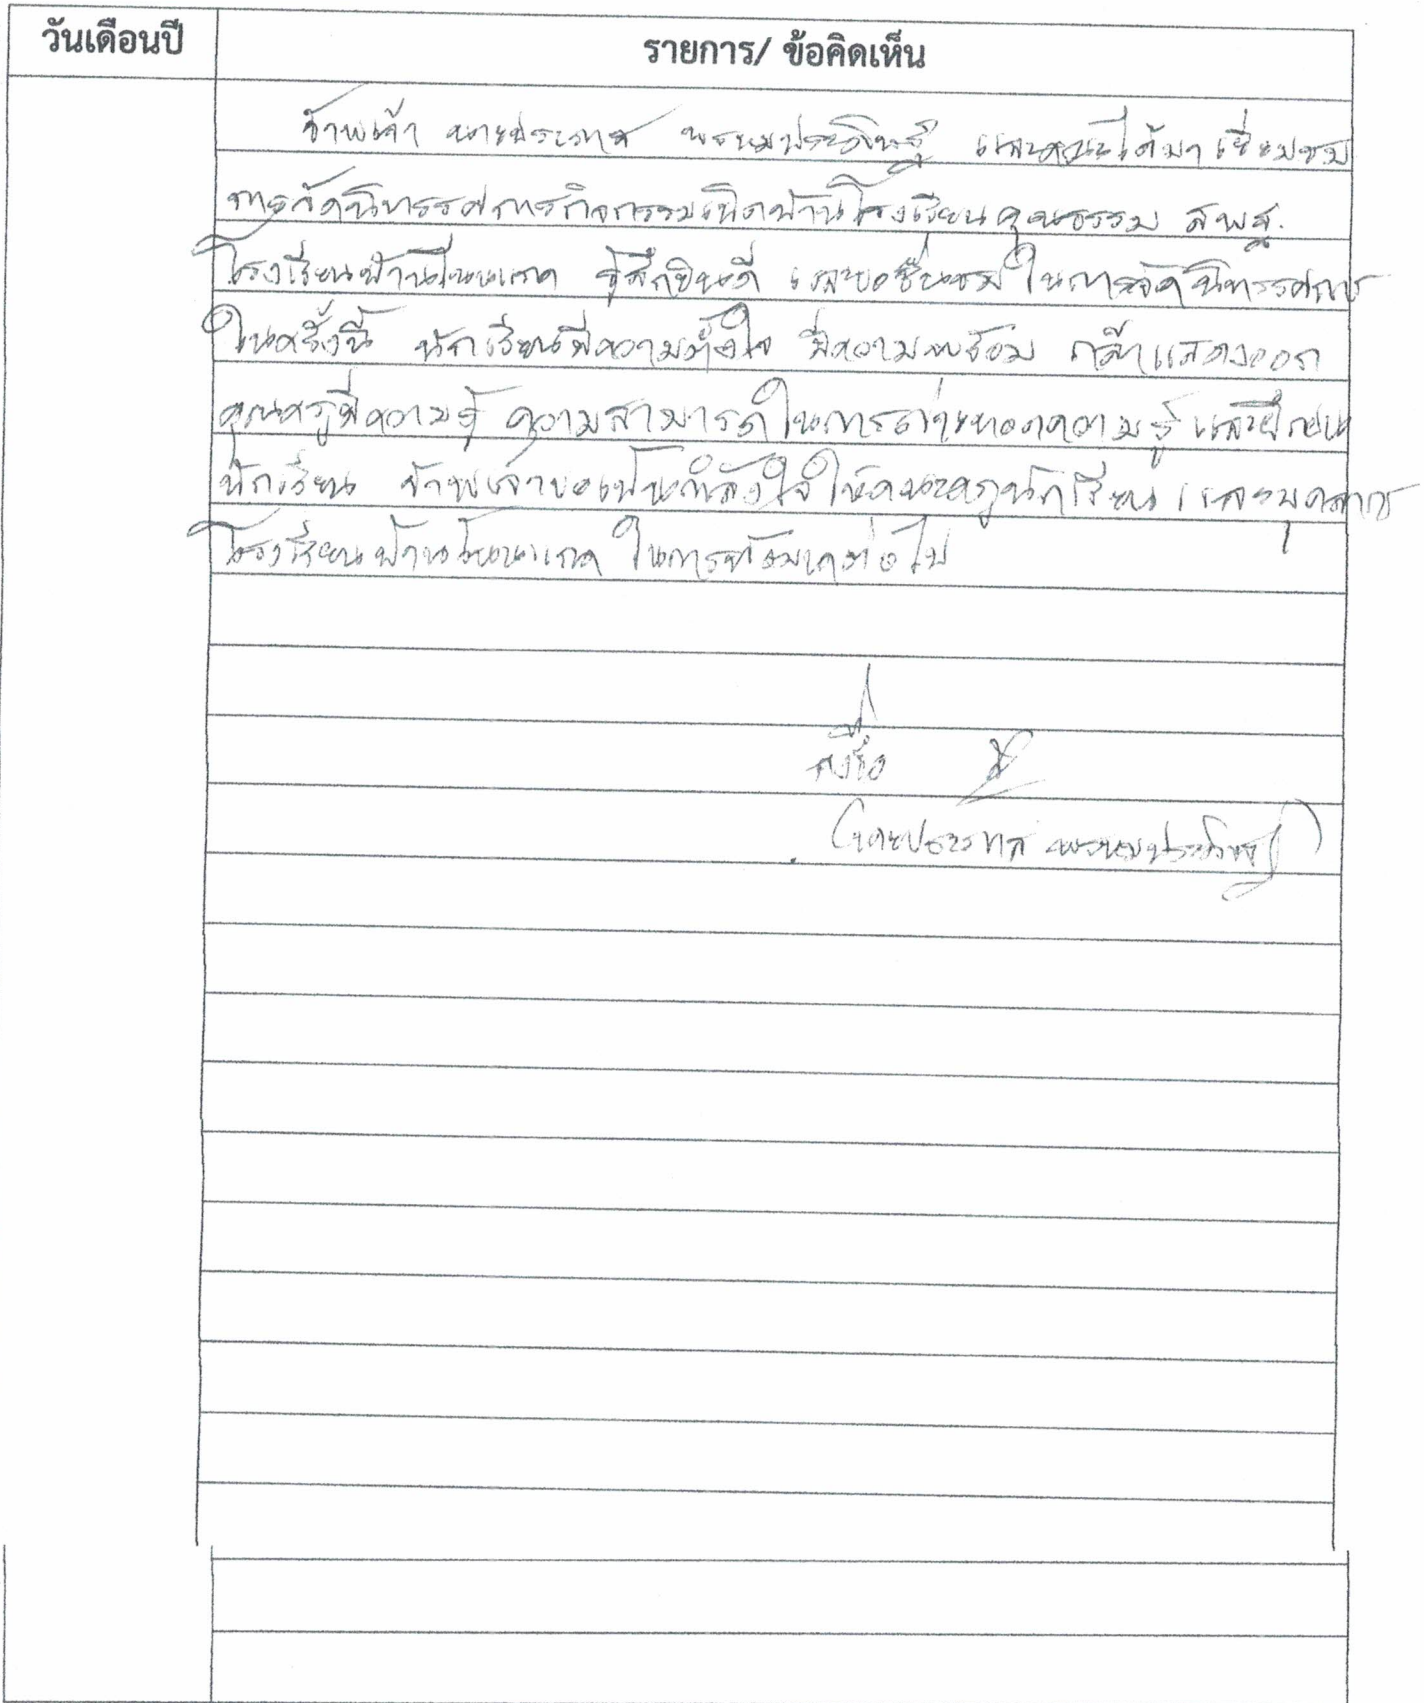 วันเดือนปี
รายการ/ ข้อคิดเห็น
ข้าพเจ้า นายประภาส พรหมประดิษฐ์ และคณะได้มาเยี่ยมชม
การจัดนิทรรศการกิจกรรมเปิดบ้านโรงเรียนคุณธรรม สพฐ.
โรงเรียนบ้าน รู้สึกยินดี และขอชื่นชมในการจัดนิทรรศการ
ในครั้งนี้ นักเรียนมีความตั้งใจ มีความพร้อม กล้าแสดงออก
คุณครูมีความรู้ ความสามารถในการถ่ายทอดความรู้ และฝึกฝน
นักเรียน ข้าพเจ้าขอเป็นกำลังใจให้คณะครูนักเรียน และบุคลากร
โรงเรียนบ้าน ในการพัฒนาต่อไป
ลงชื่อ
(นายประภาส พรหมประดิษฐ์)